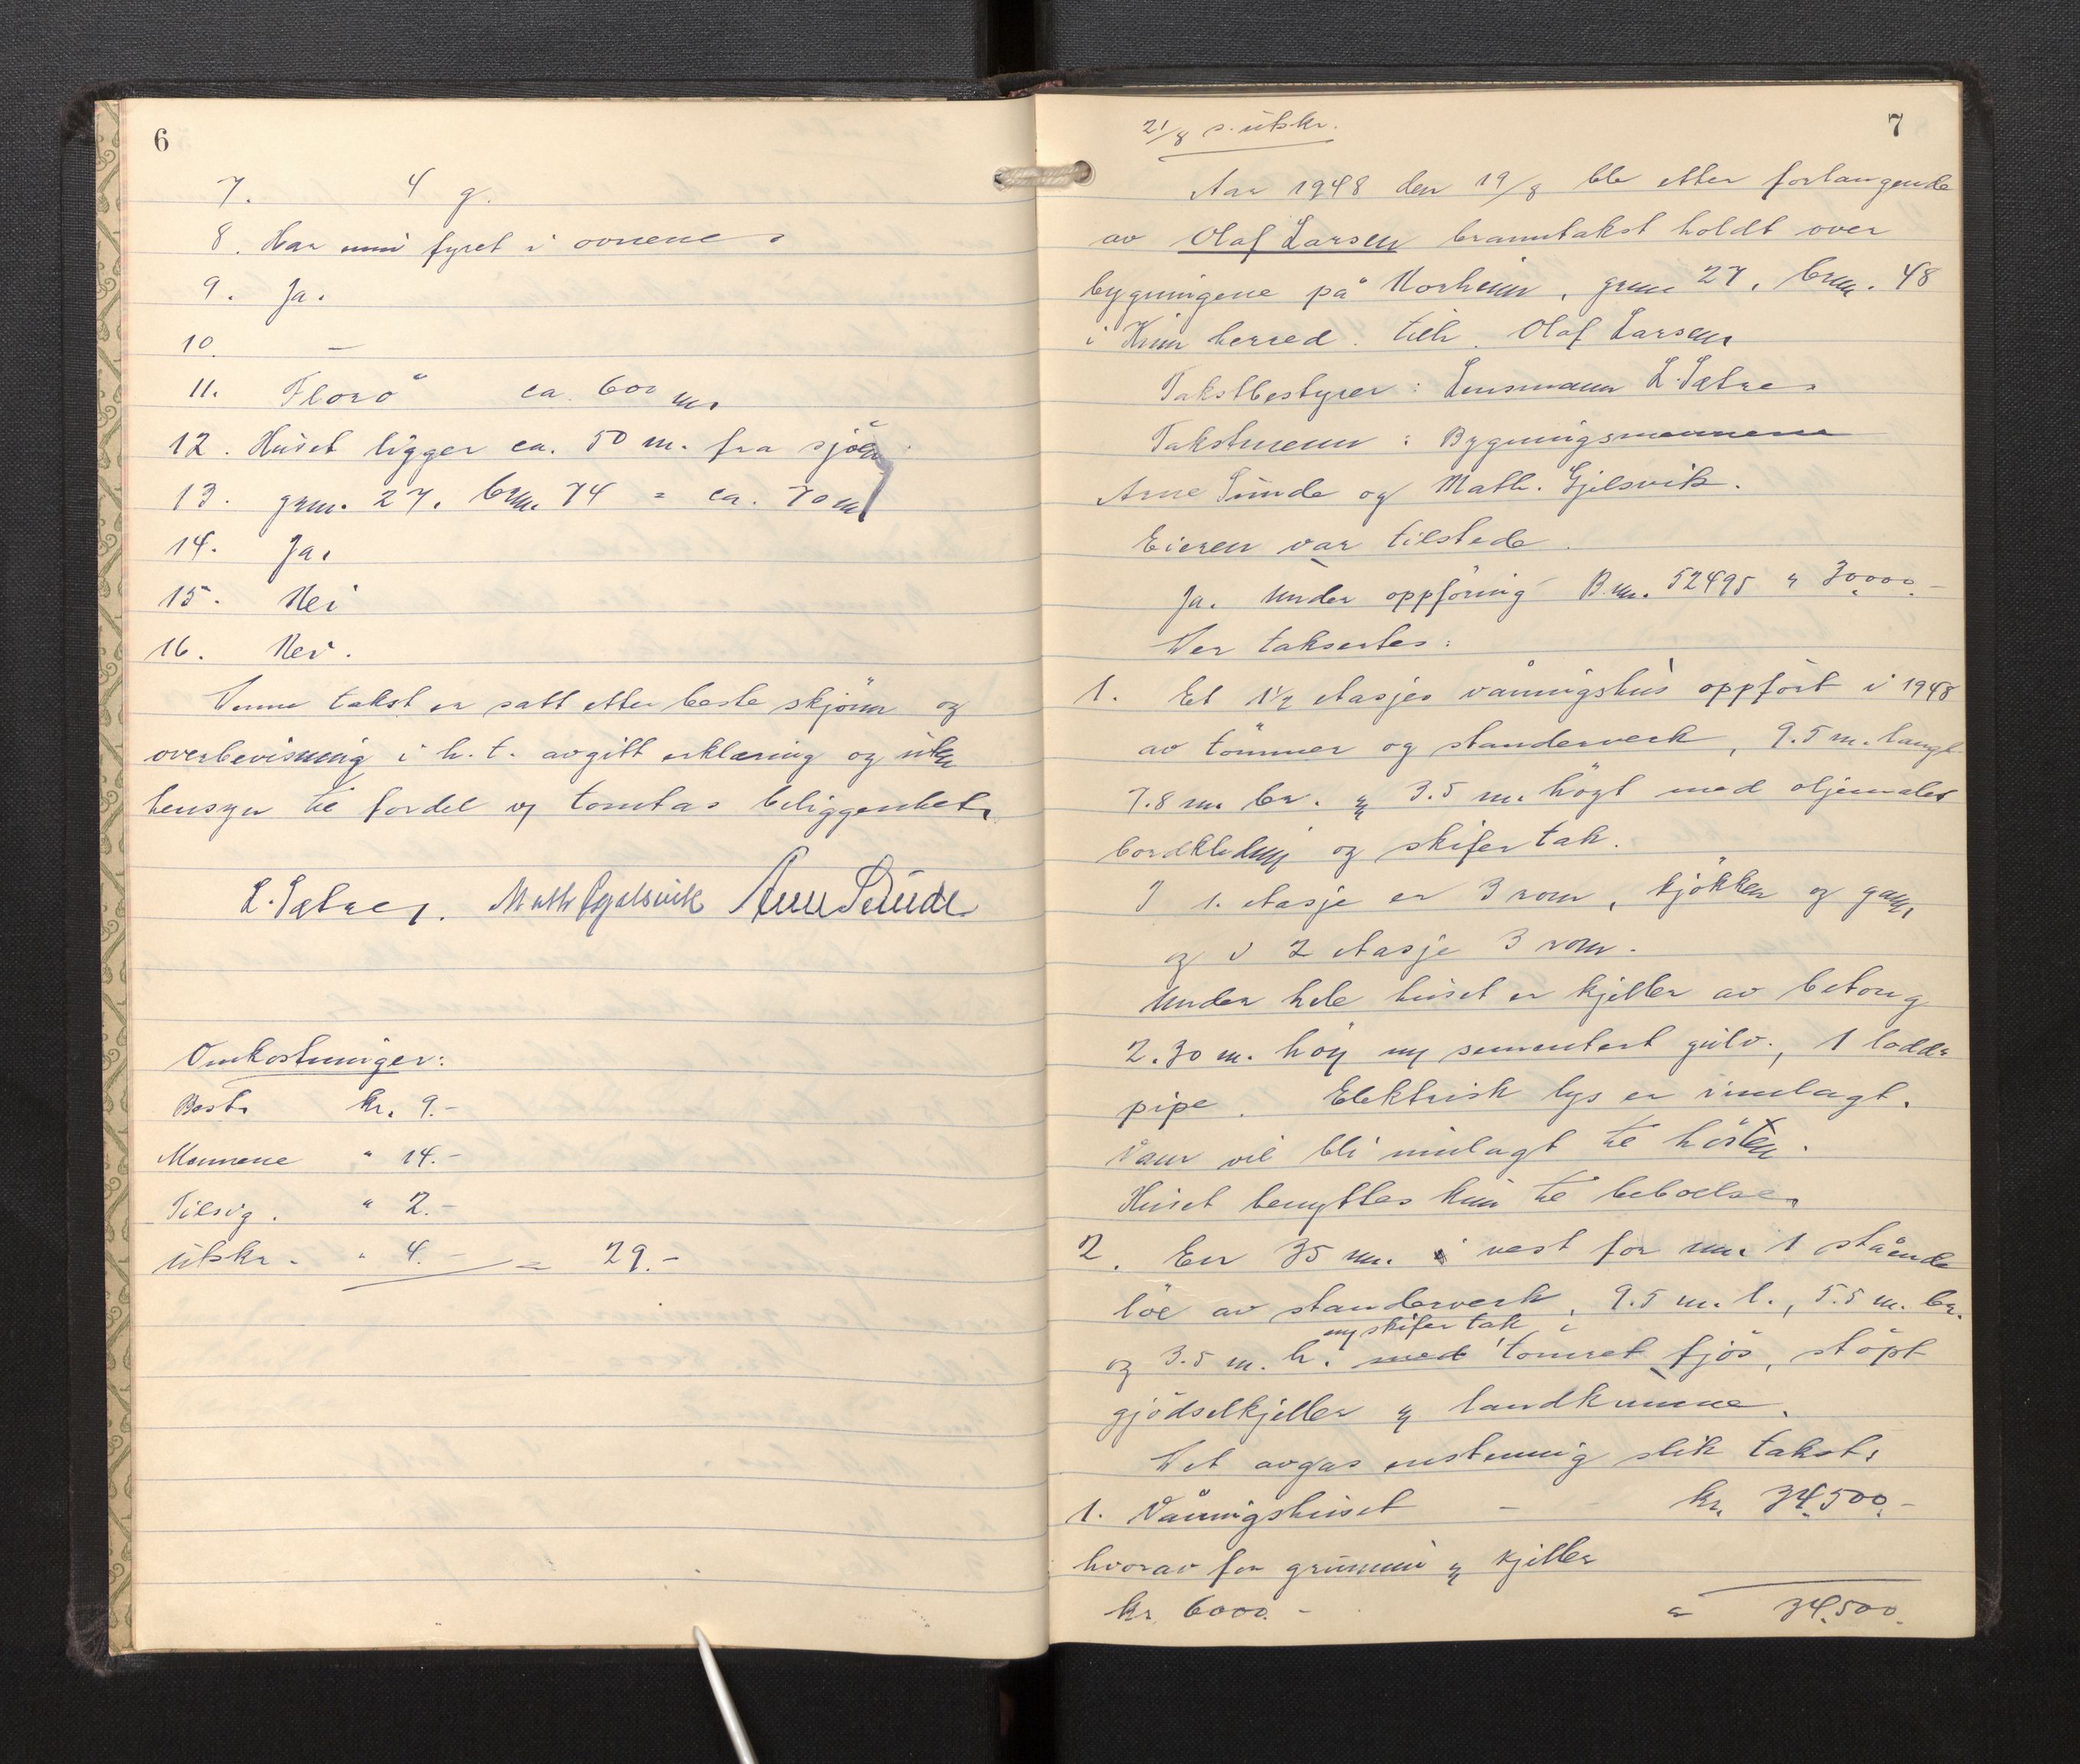 6
7. 4 g.
8. Har fyret i ovnene.
9. Ja.
10. —
11. Florö ca. 600 m.
12. Huset ligger ca. 50 m. fra sjöen
13. grnr. 27, brnr. 74 = ca. 70 m
14. Ja.
15. Nei
16. Nei.
Denne takst er satt etter beste skjönn og
overbevisning i h. t. avgitt erklæring og uten
hensyn til fordel av tomtas beliggenhet.
L. Sætre. Math Gjelsvik Arne Sunde
Omkostninger:
Best. kr. 9.-
Mennene " 14.-
Tilsig. " 2.-
Utskr. " 4.- = 29.-
7
21/8 s. utskr.
Aar 1948 den 19/8 ble etter forlangende
av Olaf Larsen branntakst holdt over
bygningene på Norheim, grnr 27, brnr. 48
i Kinn herred. tilh. Olaf Larsen
Takstbestyrer: Lensmann L. Sætre
Takstmenn: Bygningsmennene
Arne Sunde og Math. Gjelsvik.
Eieren var tilstede.
Ja. Under oppföring B.nr. 52495 = 30000.-
Der taksertes:
1. Et 1½ etasjes våningshus oppfört i 1948
av tömmer og standerverk, 9.5 m. langt
7.8 m. br. og 3.5 m. högt med oljemalt
bordkledning og skifertak.
I 1. etasje er 3 rom, kjökken og gang,
og i 2 etasje 3 rom.
Under hele huset er kjeller av betong
2.30 m. höy m/ sementert gulv., 1 lodd.
pipe. Elektrisk lys er innlagt.
Vann vil bli innlagt til hösten.
Huset benyttes kun til beboelse.
2. En 35 m. i vest for nr. 1 stående
löe av standerverk, 9.5 m. l., 5.5 m. br.
m/ skifertak
og 3.5 m. h. med tömret fjös, stöpt
gjödselkjeller og landkumme.
Det avgas enstemmig slik takst:
1. Våningshuset - kr. 34.500.-
hvorav for grunnmur og kjeller
kr. 6000.- = 34.500.